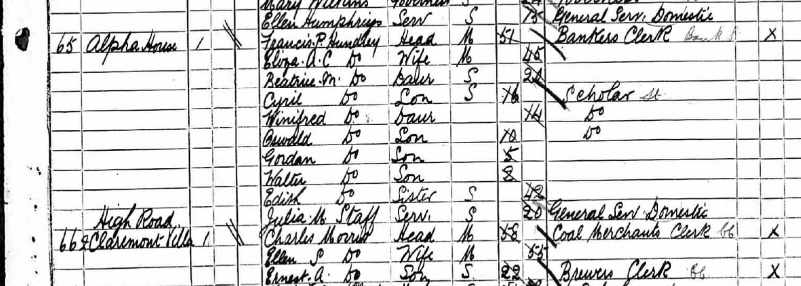 Mary Wilkins Governess S 24 Governess
Ellen Humphries Serv S 15 General Serv. Domestic
65 Alpha House 1 Francis. P. Hundley Head M 51 Bankers Clerk Bank X
Eliza. A. C Do Wife M 45
Beatrice. M. Do Daur S 20
Cyril Do Son S 16 Scholar
Winifred Do Daur 14 Do
Oswald Do Son 10 Do
Gordan Do Son 5
Walter Do Son 8
Edith Do Sister S 42
High Road Julia M Staff Serv. S 20 General Serv Domestic
66 Claremont Villa 1 Charles Morris Head M 58 Coal Merchants Clerk X
Ellen S Do Wife M 55
Ernest. A. Do Son S 22 Brewers Clerk X